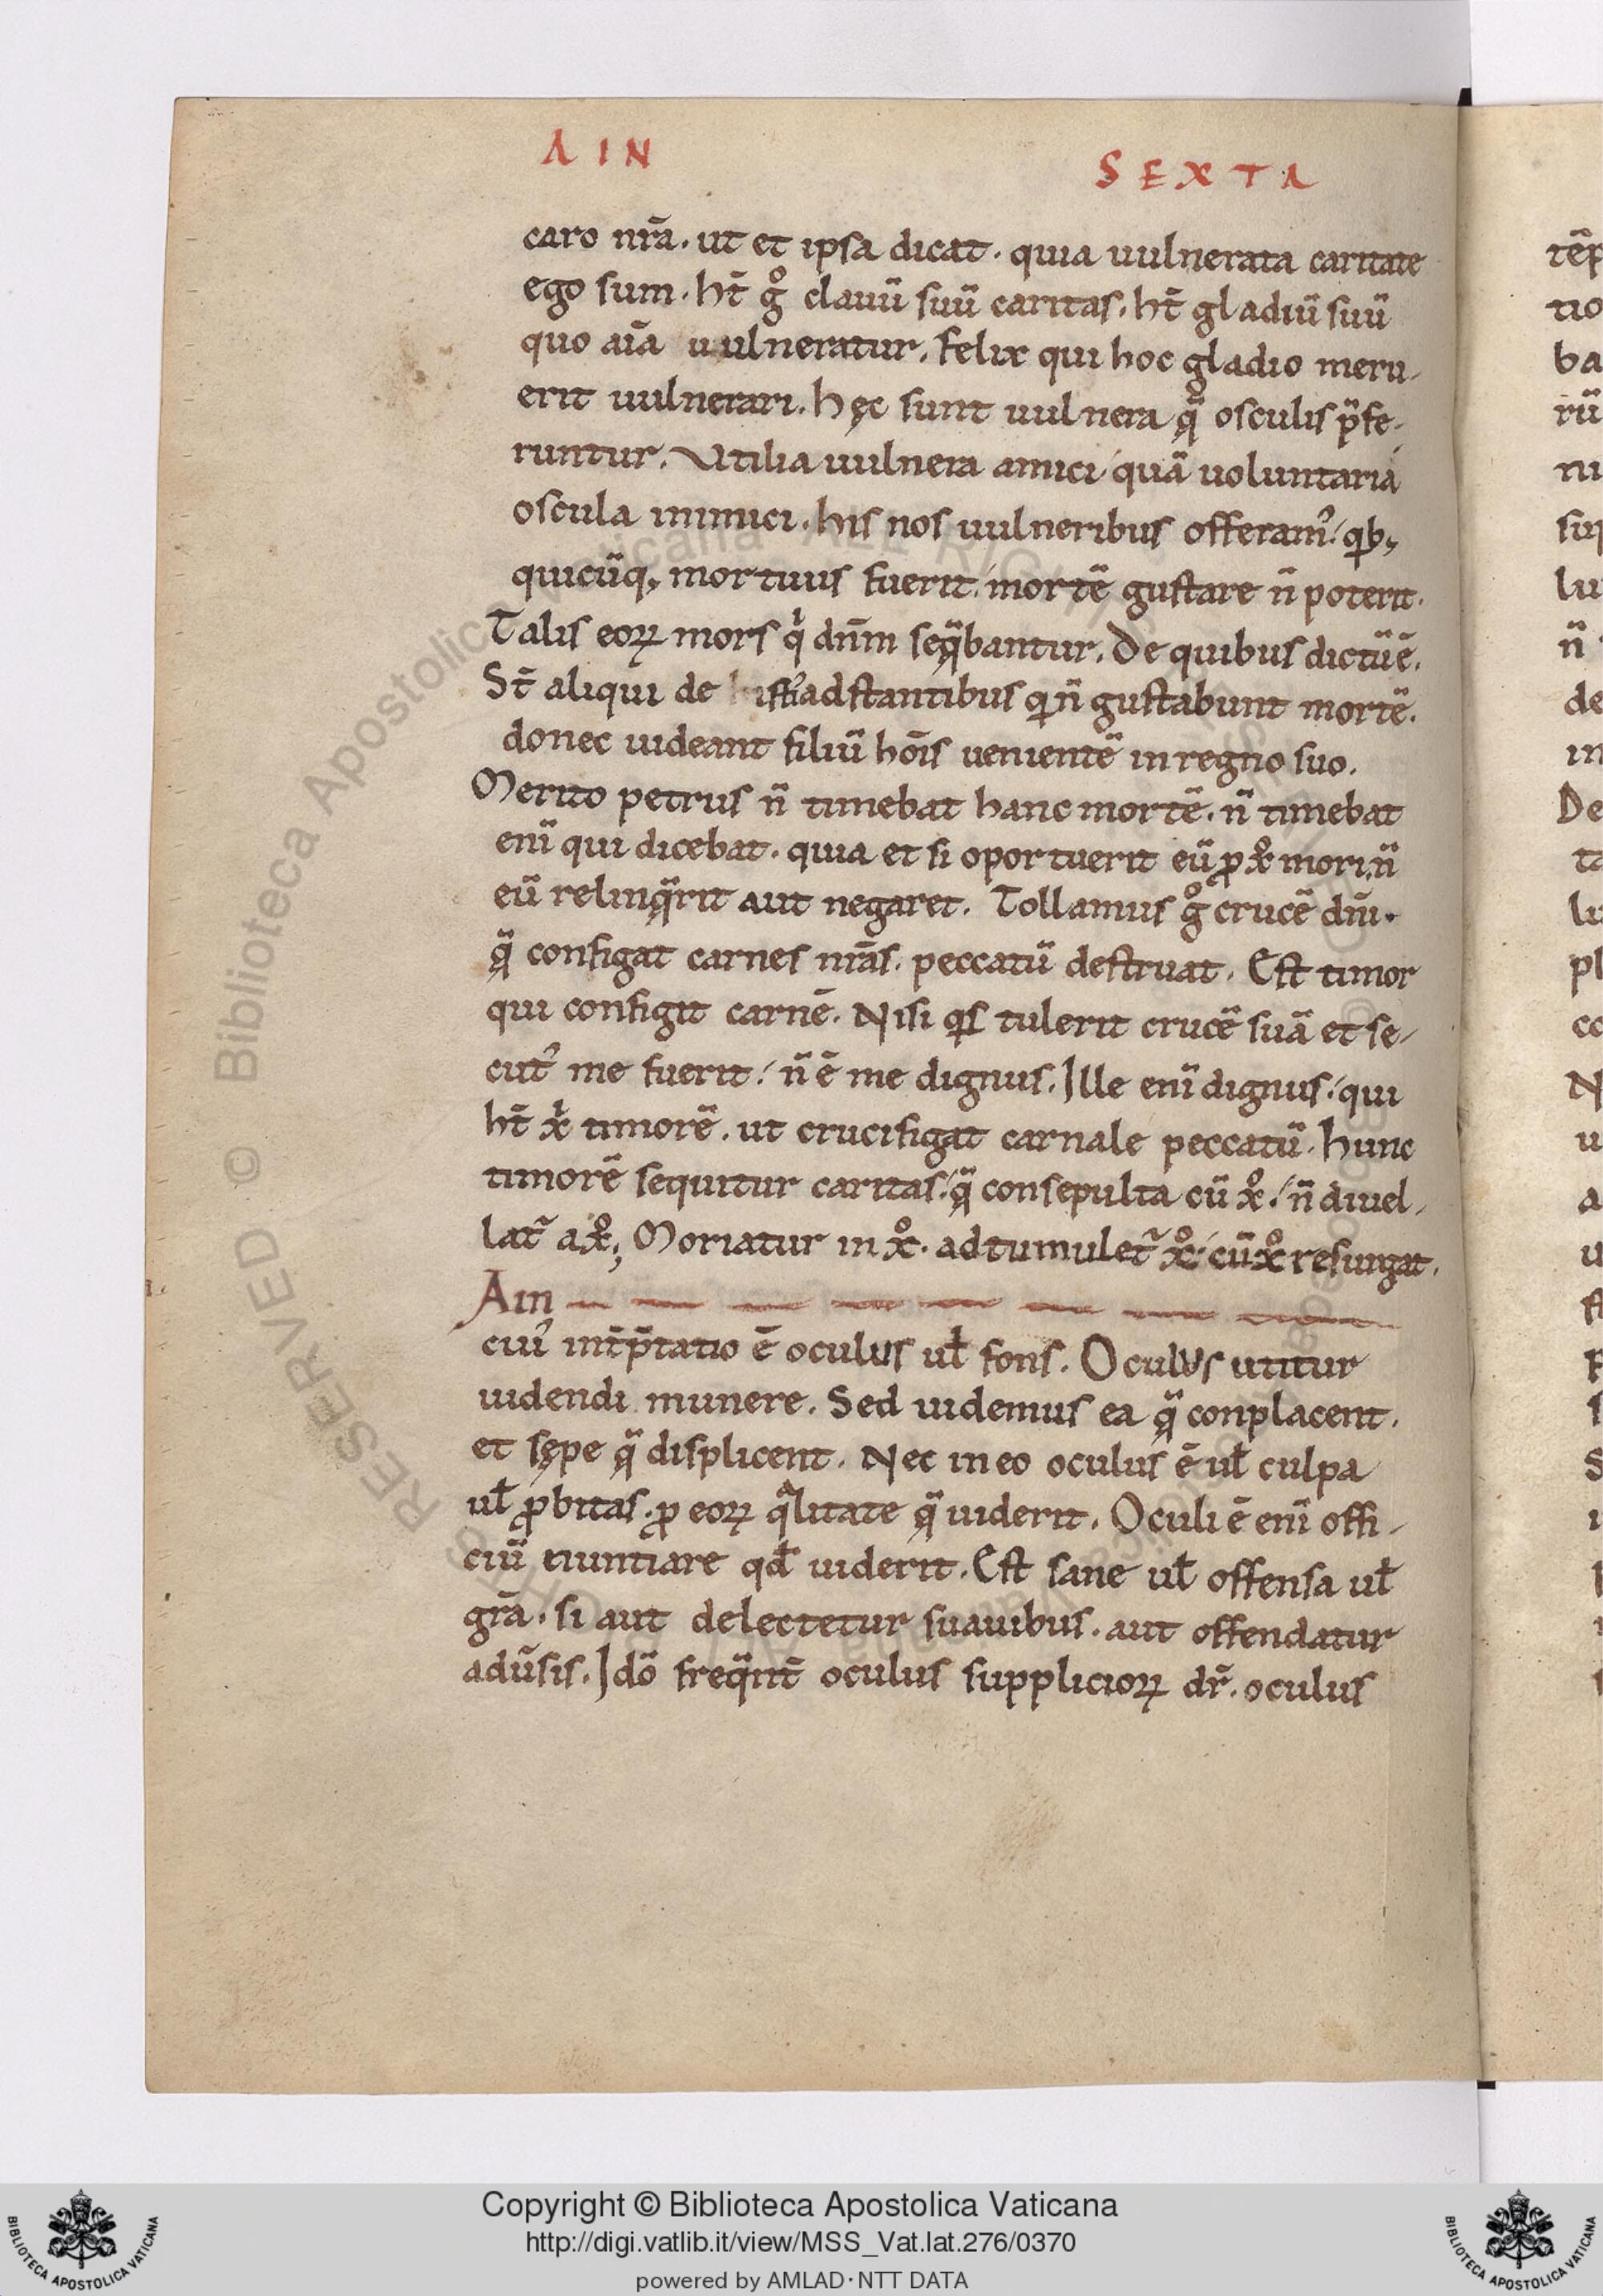 AIN SEXTA
caro nr̄a. ut et ipsa dicat. quia uulnerata caritate
ego sum. ht̄ gͦ clauū suū caritas. ht̄ gladiū suū
quo aīa uulneratur. Felix qui hoc gladio meru-
erit uulnerari. hęc sunt uulnera q̄ osculis p̄fe-
runtur. Vtilia uulnera amici quā uoluntaria
oscula inimici. his nos uulneribus offeram᷒. qb;
quicūq; mortuus fuerit. mortē gustare n̄ poterit.
Talis eoꝝ mors qͥ dn̄m seq̄bantur. De quibus dictū ē.
St̄ aliqui de istis adstantibus qi n̄ gustabunt mortē.
donec uideant filiū hōis uenientē in regno suo.
Merito petrus n̄ timebat hanc mortē. n̄ timebat
enī qui dicebat. quia et si oportuerit eū ꝓ xͦ mori, n̄
eū relinq̄rit aut negaret. Tollamus gͦ crucē dnī.
q̄ configat carnes nr̄as. peccatū destruat. Est timor
qui configit carnē. Nisi qis tulerit crucē suā et se-
cut᷒ me fuerit. n̄ ē me dignus. Ille enī dignus. qui
ht̄ xͥ timorē. ut crucifigat carnale peccatū. hunc
timorē sequitur caritas. q̄ consepulta cū xͦ. n̄ diuel-
lat᷑ a xͦ; Moriatur in xͦ. adtumulet᷑ xͦ. cū xͦ resurgat.
Ain
cui᷒ int̄p̄tatio ē oculus ul̄ fons. Oculus utitur
uidendi munere. Sed uidemus ea q̄ conplacent.
et sępe q̄ displicent. Nec in eo oculus ē ul̄ culpa
ul̄ ꝓbitas. ꝓ eoꝝ qͣlitate q̄ uiderit. Oculi ē enī offi-
ciū nuntiare qd̄ uiderit. Est sane ul̄ offensa ul̄
gr̄a. si aut delectetur suauibus. aut offendatur
adūsis. Idō freq̄nt̄ oculus supplicioꝝ dr̄. oculus
Copyright © Biblioteca Apostolica Vaticana
http://digi.vatlib.it/view/MSS_Vat.lat.276/0370
powered by AMLAD·NTT DATA